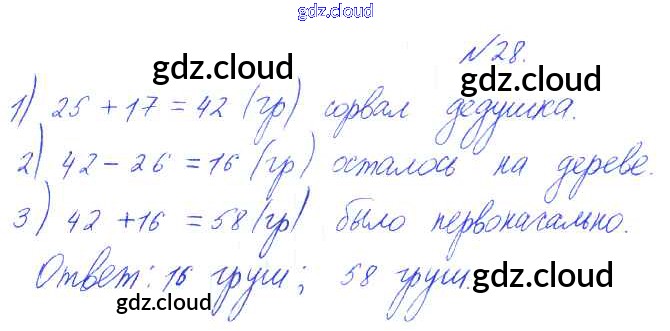 gdz.cloud
gdz.cloud
№28.
gdz.cloud
gdz.cloud
1) 25 + 17 = 42 (гр) сорвал дедушка.
2) 42 - 26 = 16 (гр) осталось на дереве.
gdz.cloud
gdz.cloud
3) 42 + 16 = 58 (гр) было первоначально.
Ответ: 16 груш; 58 груш.
gdz.cloud
gdz.cloud